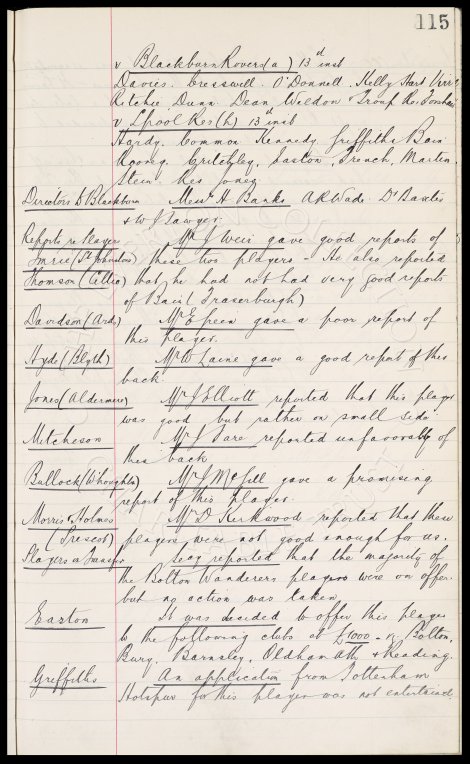 115
v Blackburn Rovers (a) 13th inst
Davies. Cresswell. O'Donnell. Kelly Hart Virr,
Ritchie Dunn. Dean, Weldon Troup Res
v L'pool Res (h) 13th inst
Hardy. Common Kennedy Griffiths Bain
Rooney. Critchley. Easton. French, Martin.
Stein. Res Jones
Directors to Blackburn Messrs H Banks A R Wade. Dr Baxter
& W J Sawyer.
Reports re Players Mr J Weir gave good reports of
Imrie (St Johnstone) these two players - He also reported
Thomson (Alloa) that he had not had very good reports
of Bain (Fraserburgh)
Davidson (Ards) Mr E Green gave a poor report of
this player.
Hyde (Blyth) Mr W Laine gave a good report of this
back.
Jones (Aldermere) Mr J Elliott reported that this player
was good but rather on small side.
Mitcheson Mr J are reported unfavorably of
this back
Bullock (W'houghton) Mr J McGill gave a promising
report of this player.
Morris & Holmes Mr D Kirkwood reported that these
(Prescot) players were not good enough for us.
Players on Transfer Secy reported that the majority of
the Bolton Wanderers players were on offer
but no action was taken
Easton It was decided to offer this player
to the following clubs at £1000 - viz Bolton,
Bury, Barnsley, Oldham Ath & Reading.
Griffiths An application from Tottenham
Hotspur for this player was not entertained.